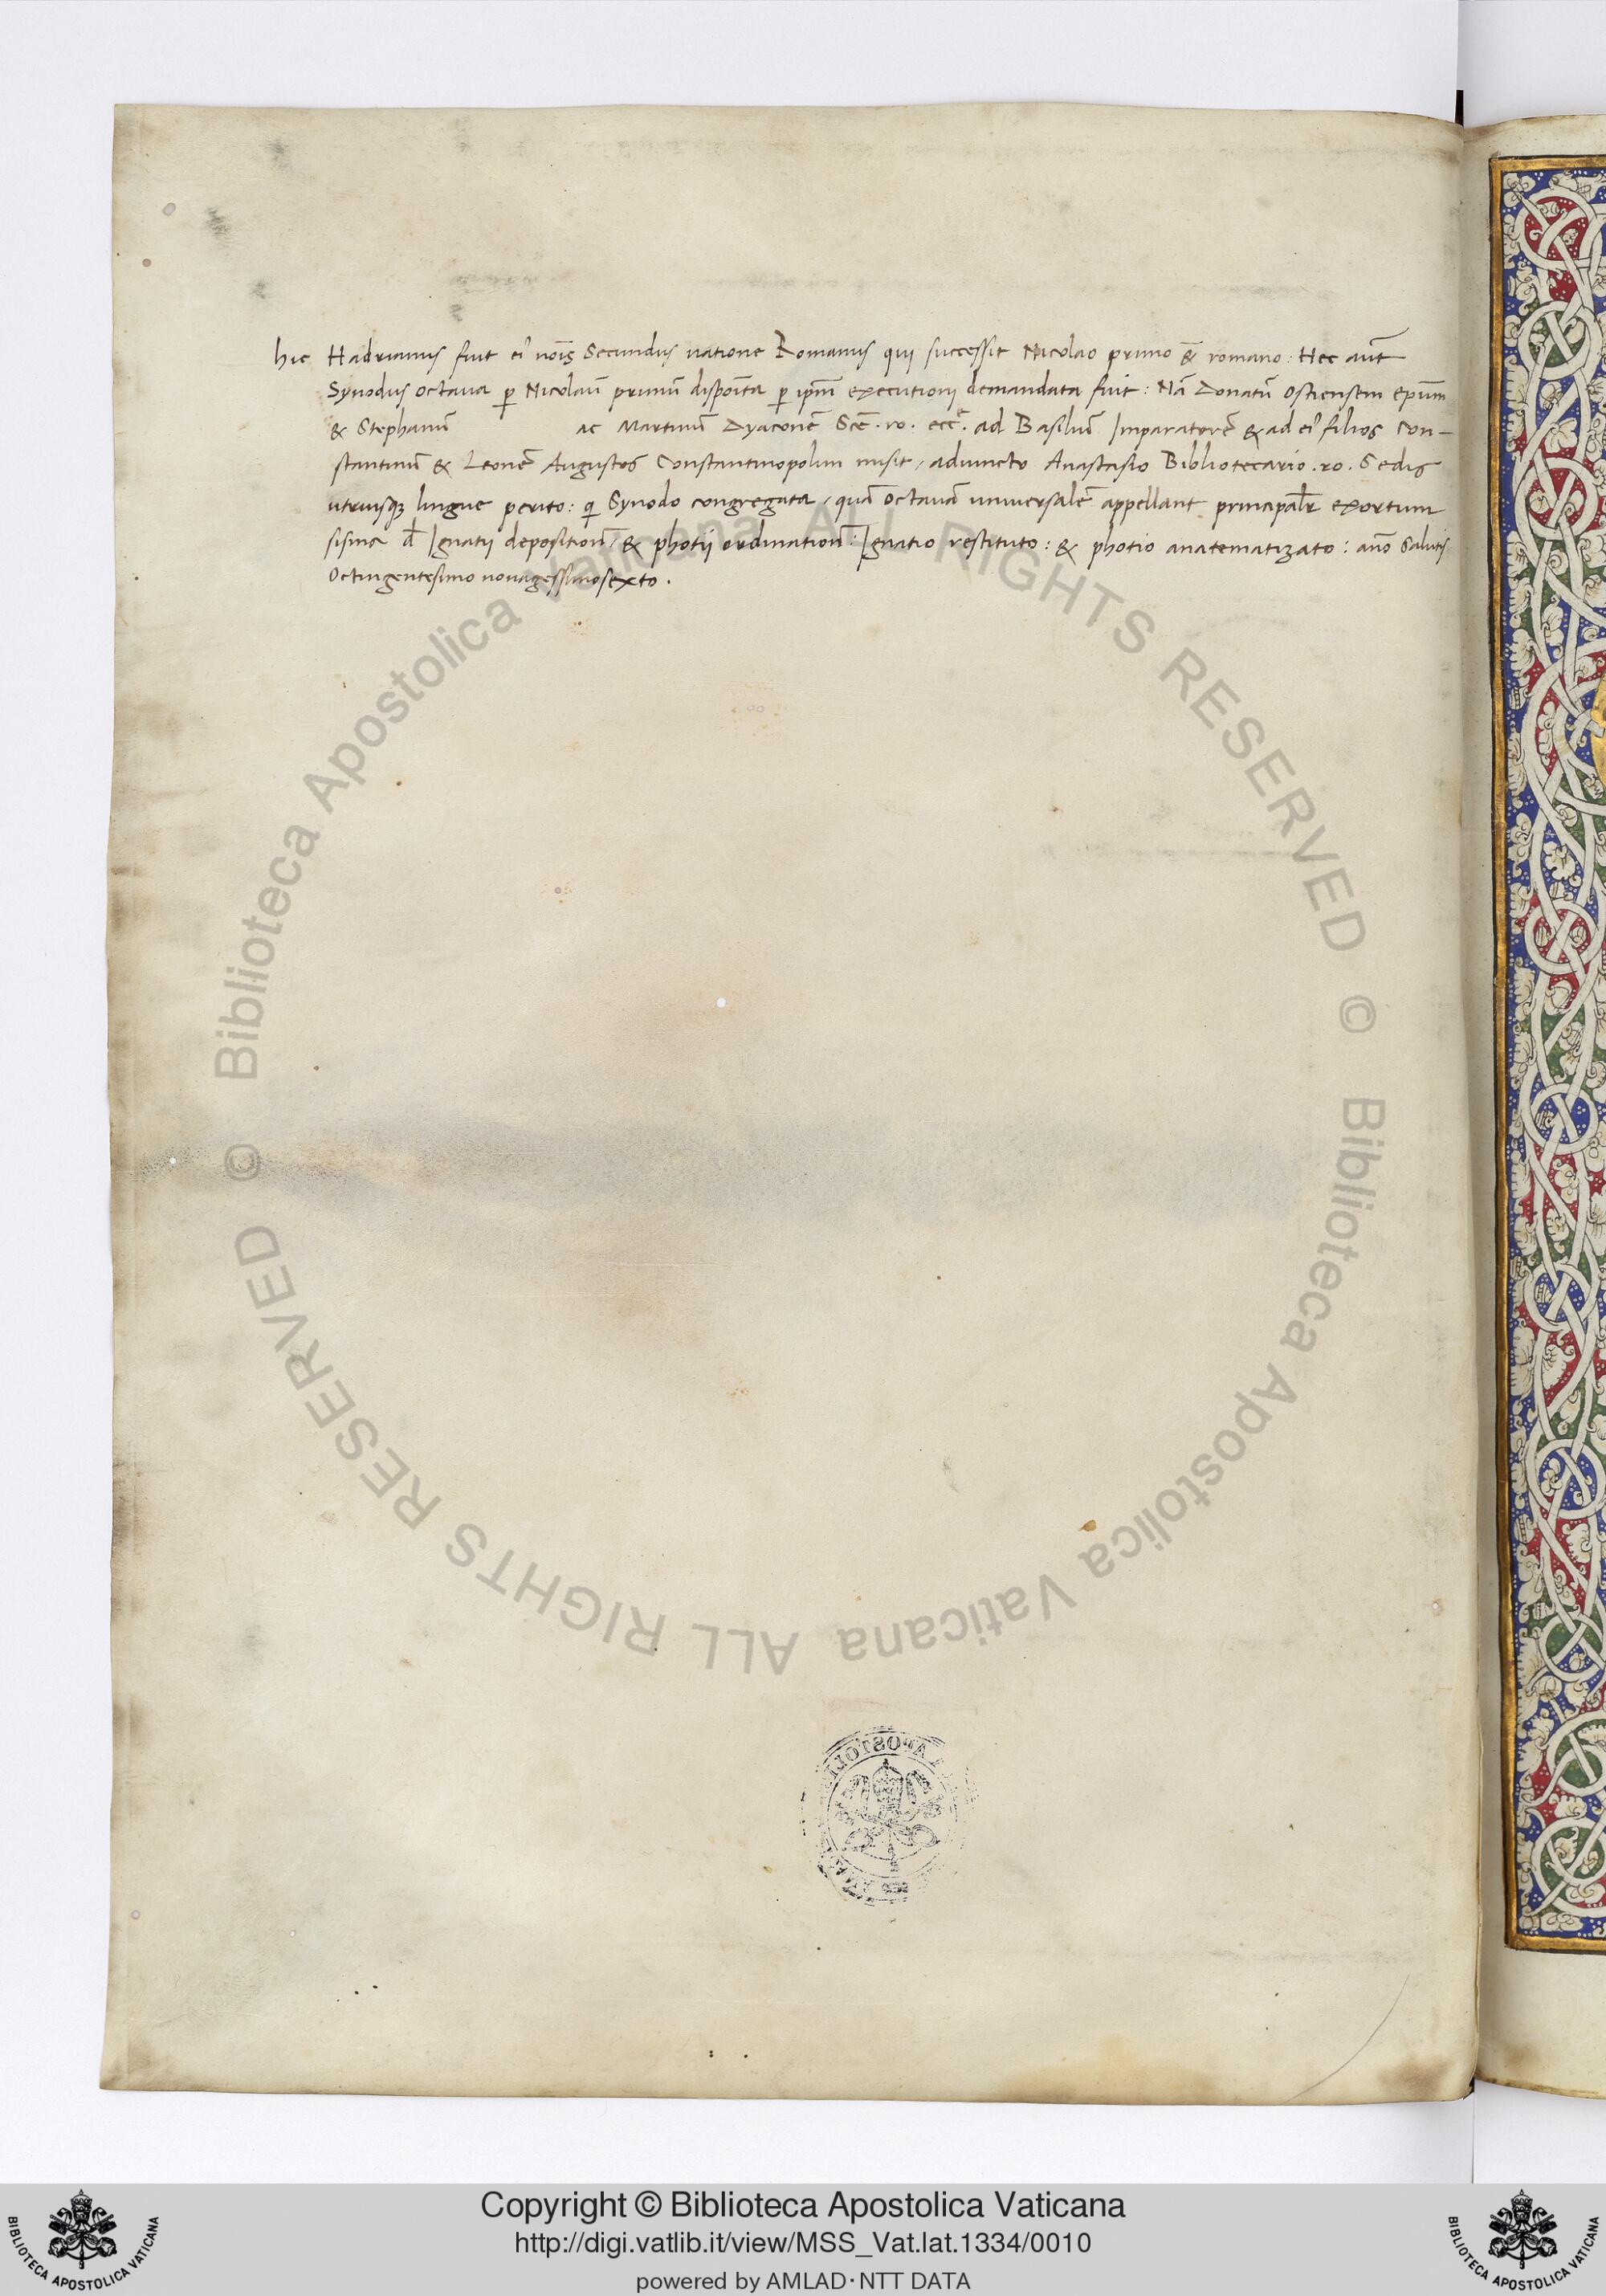 hic Hadrianus fuit ei᾽ noīs Secundus natione Romanus qui successit Nicolao primo & romano: Hec aūt
Synodus octava ꝑ Nicolaū primū disposita ꝑ ipm̄ executioni demandata fuit: Nā Donatū Ostiensem epūm
& Stephanū ac Martinū Dyaconē Scē. ro. eccē. ad Basiliū Imparatorē & ad ei᾽ filios Con-
stantinū & Leonē Augustos Constantinopolim misit, adiuncto Anastasio Bibliotecario. ro. Sedis
utriusqꝫ lingue perito: qi Synodo congregata, quā octavā universalē appellant principalr̄ exortum
sisma d̄ Ignatii deposition̄, & photii ordination̄: Ignatio restituto: & photio anatematizato: anō Salutis
Octingentesimo nonagessimosexto.
© Biblioteca Apostolica Vaticana ALL RIGHTS RESERVED
© Biblioteca Apostolica Vaticana ALL RIGHTS RESERVED
Copyright © Biblioteca Apostolica Vaticana
http://digi.vatlib.it/view/MSS_Vat.lat.1334/0010
powered by AMLAD·NTT DATA
BIBLIOTECA APOSTOLICA VATICANA
BIBLIOTECA APOSTOLICA VATICANA